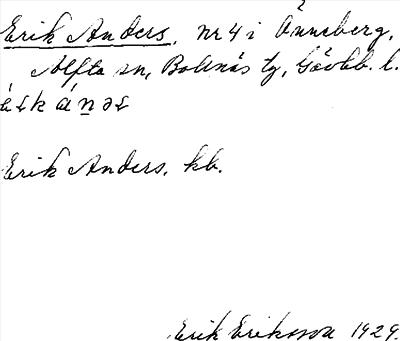 Erik Anders, nr 4 i Änneberg,
Alfta sn, Bollnäs tg, Gävleb. l.
Erik Anders, kb.
Erik Eriksson 1929.